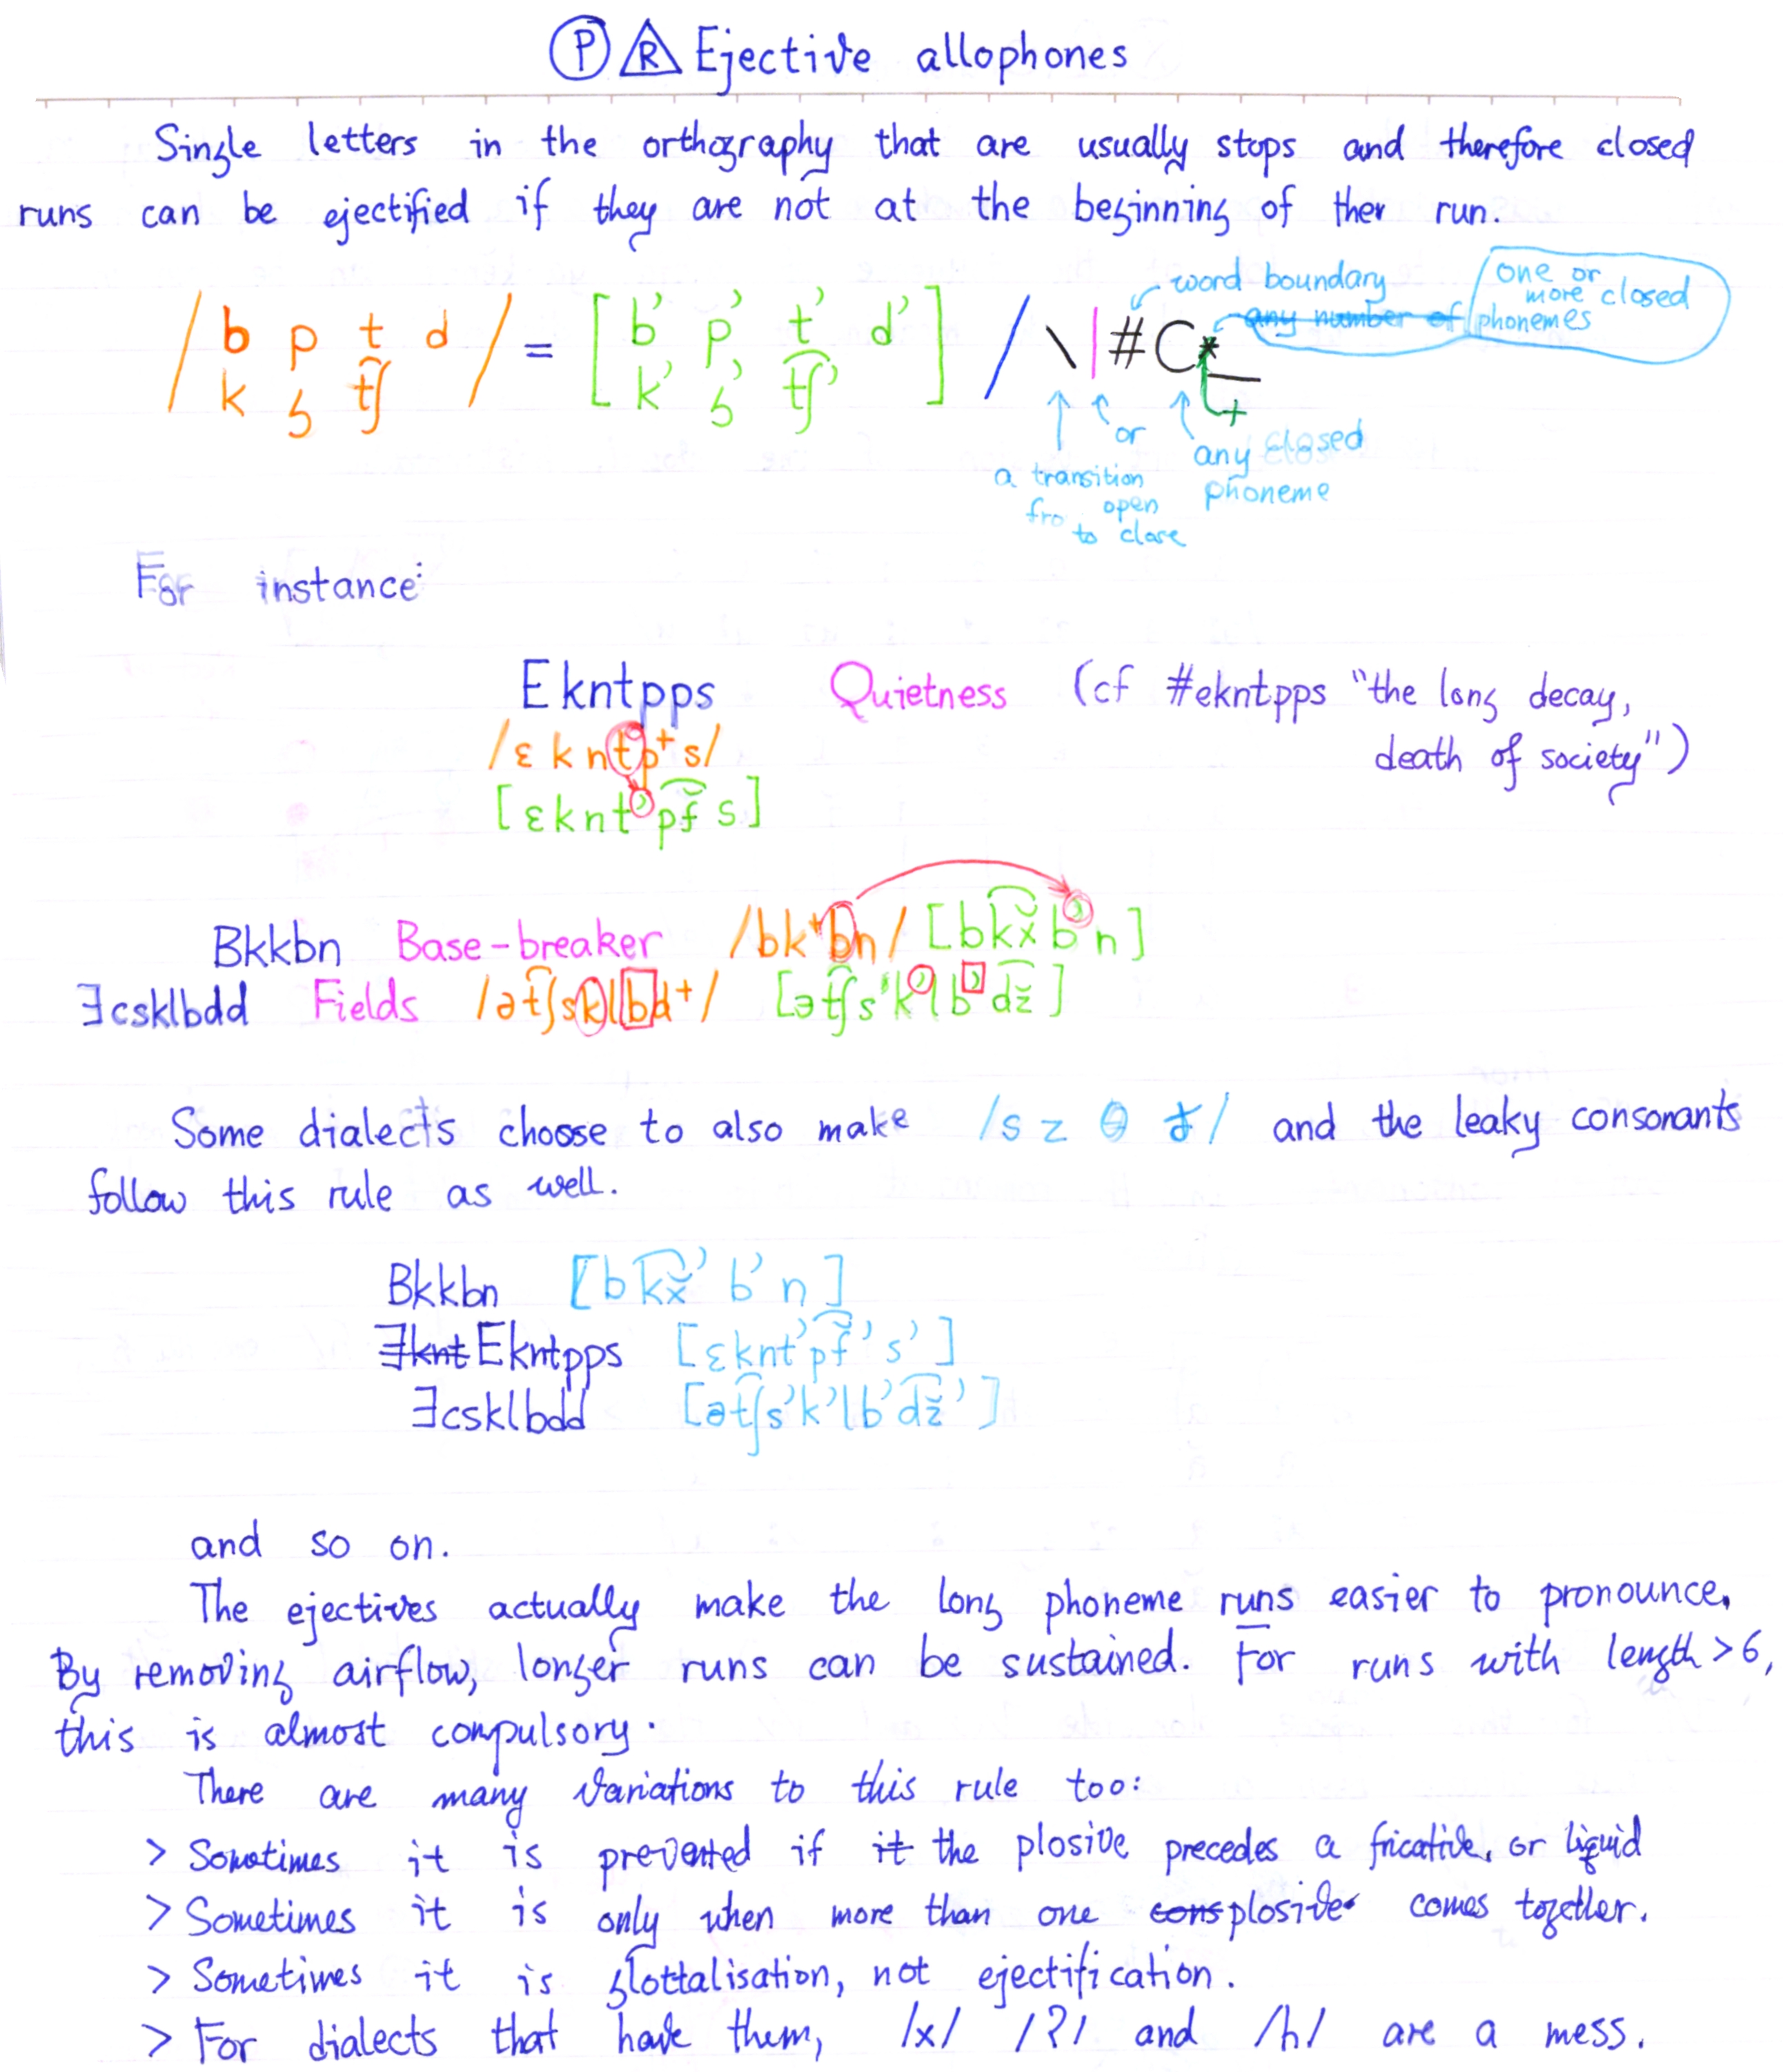 Ⓟ R Ejective allophones
Single letters in the orthography that are usually stops and therefore closed
runs can be ejectified if they are not at the beginning of ther run.
word boundary
any number of one or more closed phonemes
/ b p t d / = [ b' p' t' d' ] / \|#C*_
k g t͡ʃ k' g' t͡ʃ'
+
a transition fro open to close
or
any closed phoneme
For instance:
Ekntpps Quietness (cf #ekntpps "the long decay,
/ɛkntp⁺s/ death of society")
[ɛknt'p͡f̆s]
Bkkbn Base-breaker /bk⁺bn/ [bk͡x̆b'n]
Ǝcsklbdd Fields /ət͡ʃsklbd⁺/ [ət͡ʃs'k'lb'd͡z̆]
Some dialects choose to also make /s z θ ð/ and the leaky consonants
follow this rule as well.
Bkkbn [bk͡x̆'b'n]
Ǝknt Ekntpps [ɛknt'p͡f̆'s']
Ǝcsklbdd [ət͡ʃs'k'lb'd͡z̆']
and so on.
The ejectives actually make the long phoneme runs easier to pronounce.
By removing airflow, longer runs can be sustained. For runs with length > 6,
this is almost compulsory.
There are many variations to this rule too:
> Sometimes it is prevented if it the plosive precedes a fricative, or liquid
> Sometimes it is only when more than one cons plosive comes together.
> Sometimes it is glottalisation, not ejectification.
> For dialects that have them, /x/ /ʔ/ and /h/ are a mess.